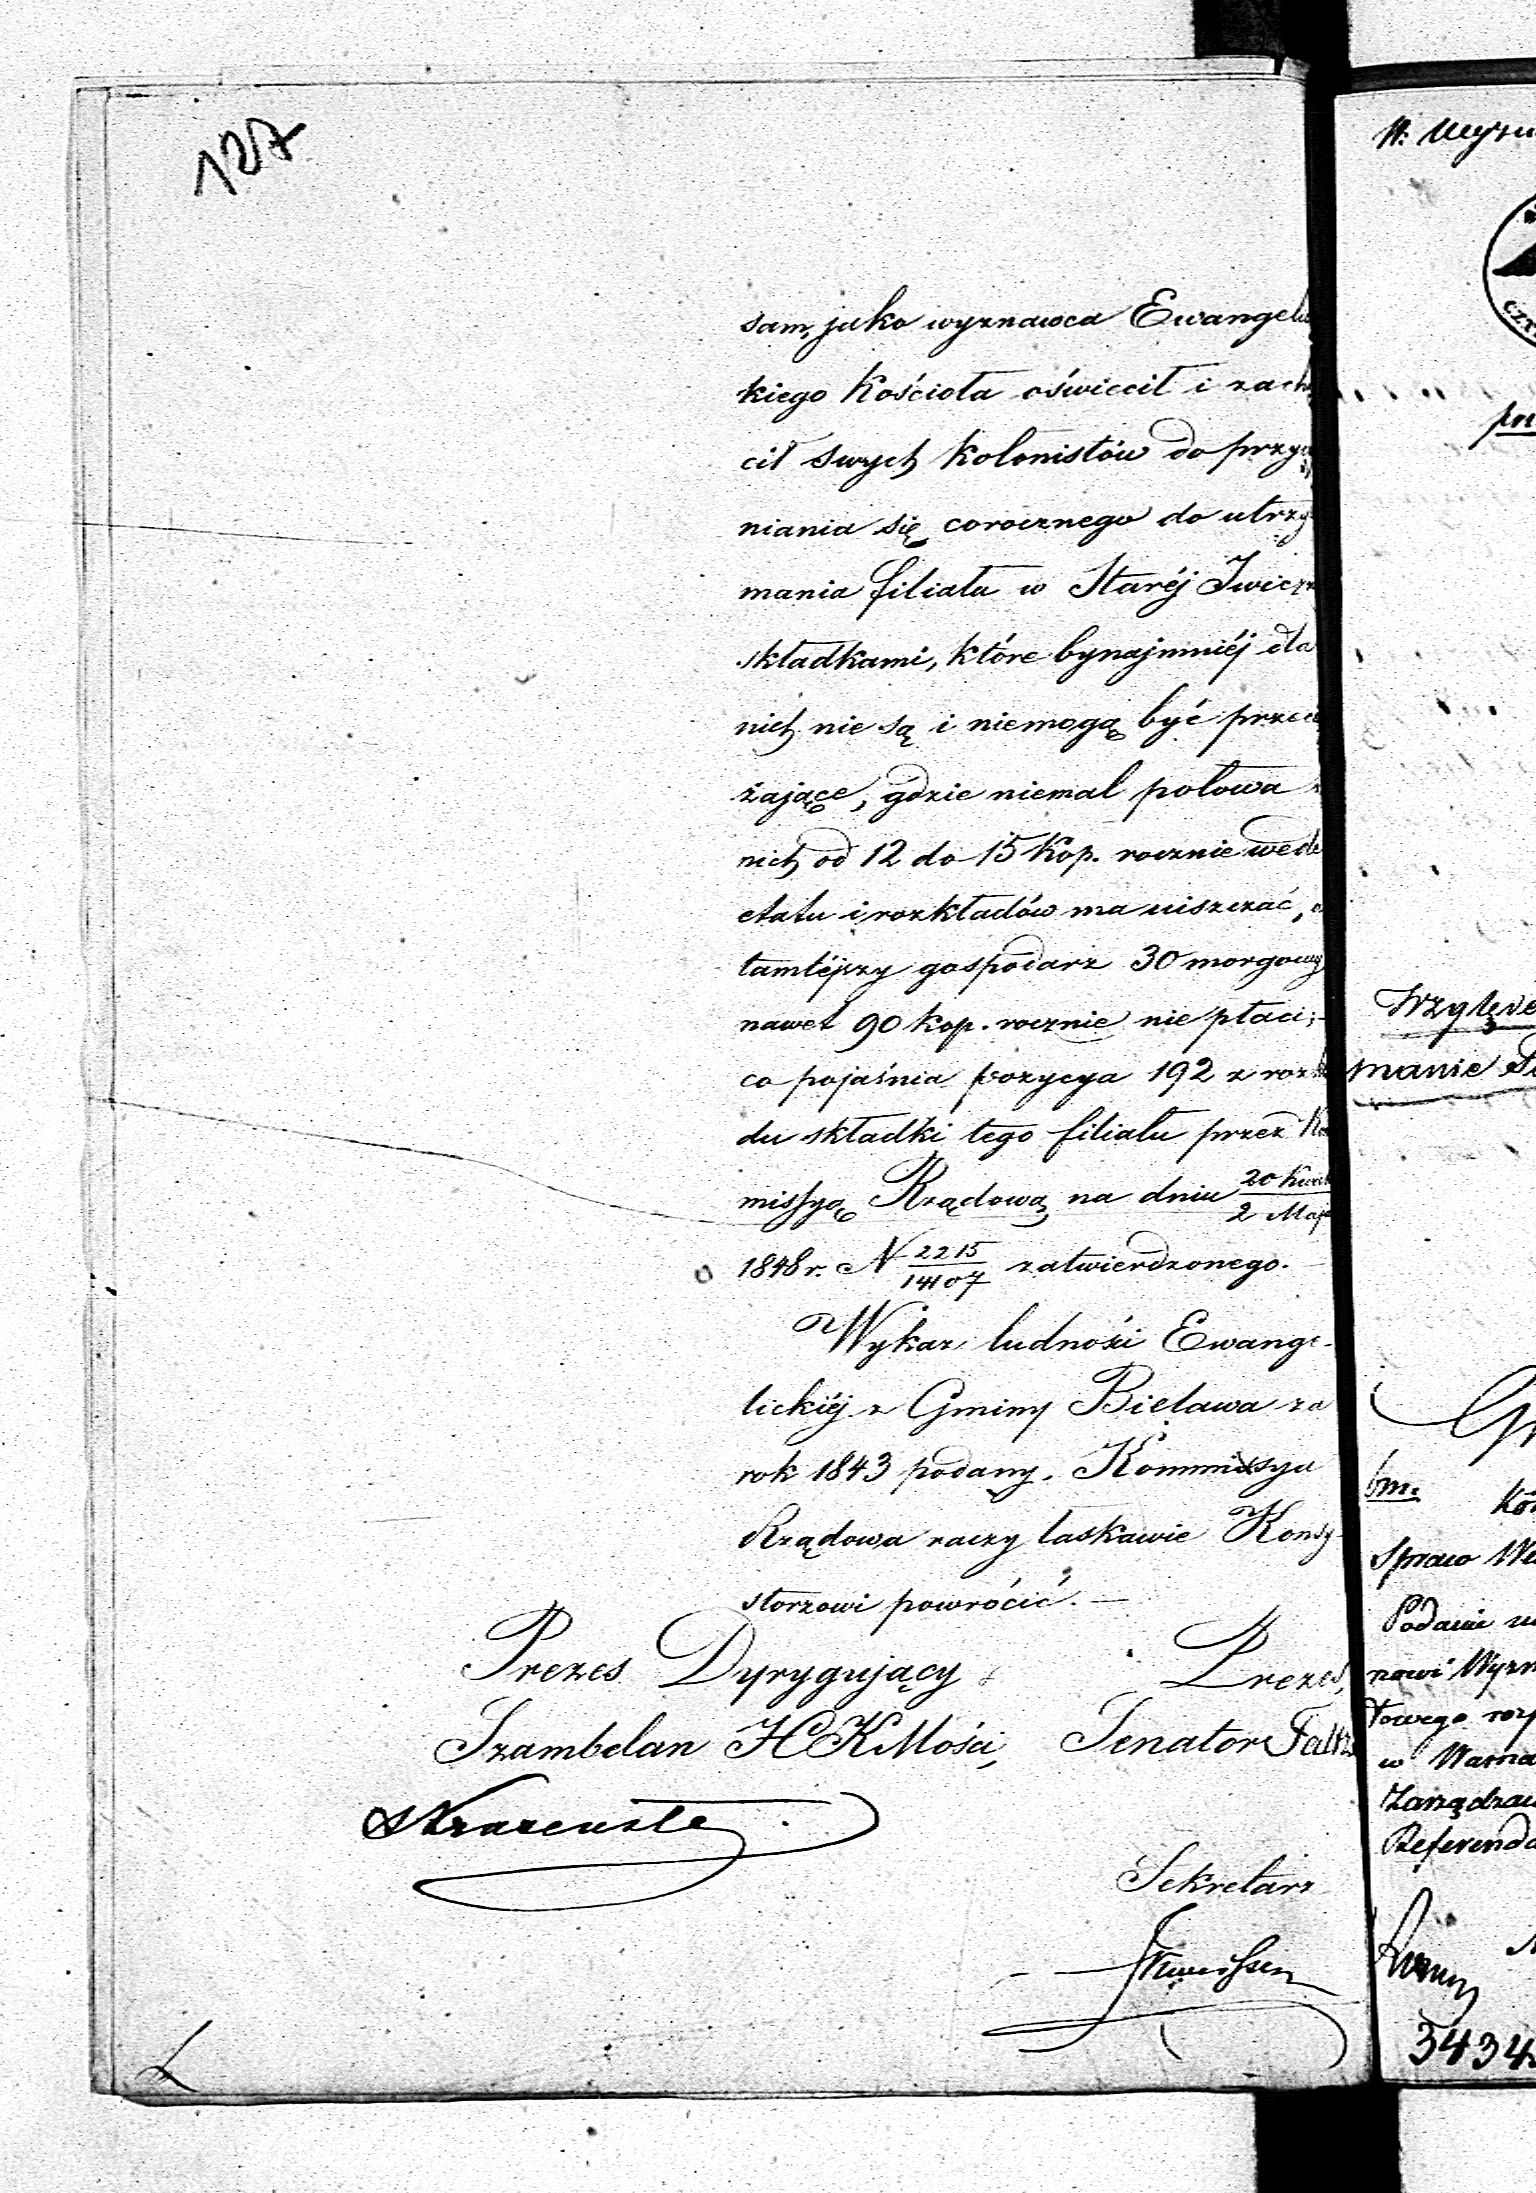 127
sam, jako wyznawca Ewangelic
kiego Kościoła oświecił i zach
cił swych kolonistów do przyc
niania się corocznego do utrzy
mania filiału w Staréj Iwicz
składkami, które bynajmniéj dla
nich nie są i niemogą być przeci
żające, gdzie niemal połowa z
nich od 12 do 15 Kop. rocznie wedł
etatu i rozkładów ma uiszczać, a
tamtéjszy gospodarz 30 morgowy
nawet 90 kop. rocznie nie płaci;-
co pojaśnia pozycya 192 z rozkł
du składki tego filiału przez Ko
missyą Rządową na dniu 20 Kwiet / 2 Maja
1848 r. N 2215/14107 zatwierdzonego.
Wykaz ludności Ewange-
lickiéj z Gminy Bielawa za
rok 1843 podany, Kommissya
Rządowa raczy łaskawie Konsy-
storzowi powrócić. —
Prezes Dyrygujący Prezes,
Szambelan JKMości, Senator
Sekretarz
W. Wyzn
CZT
po
Względe
manie
bm. Kom
Spraw We
Podanie
nowi Wyzn
towego rozp
w Warsza
Zarządzaj
Referenda
3434